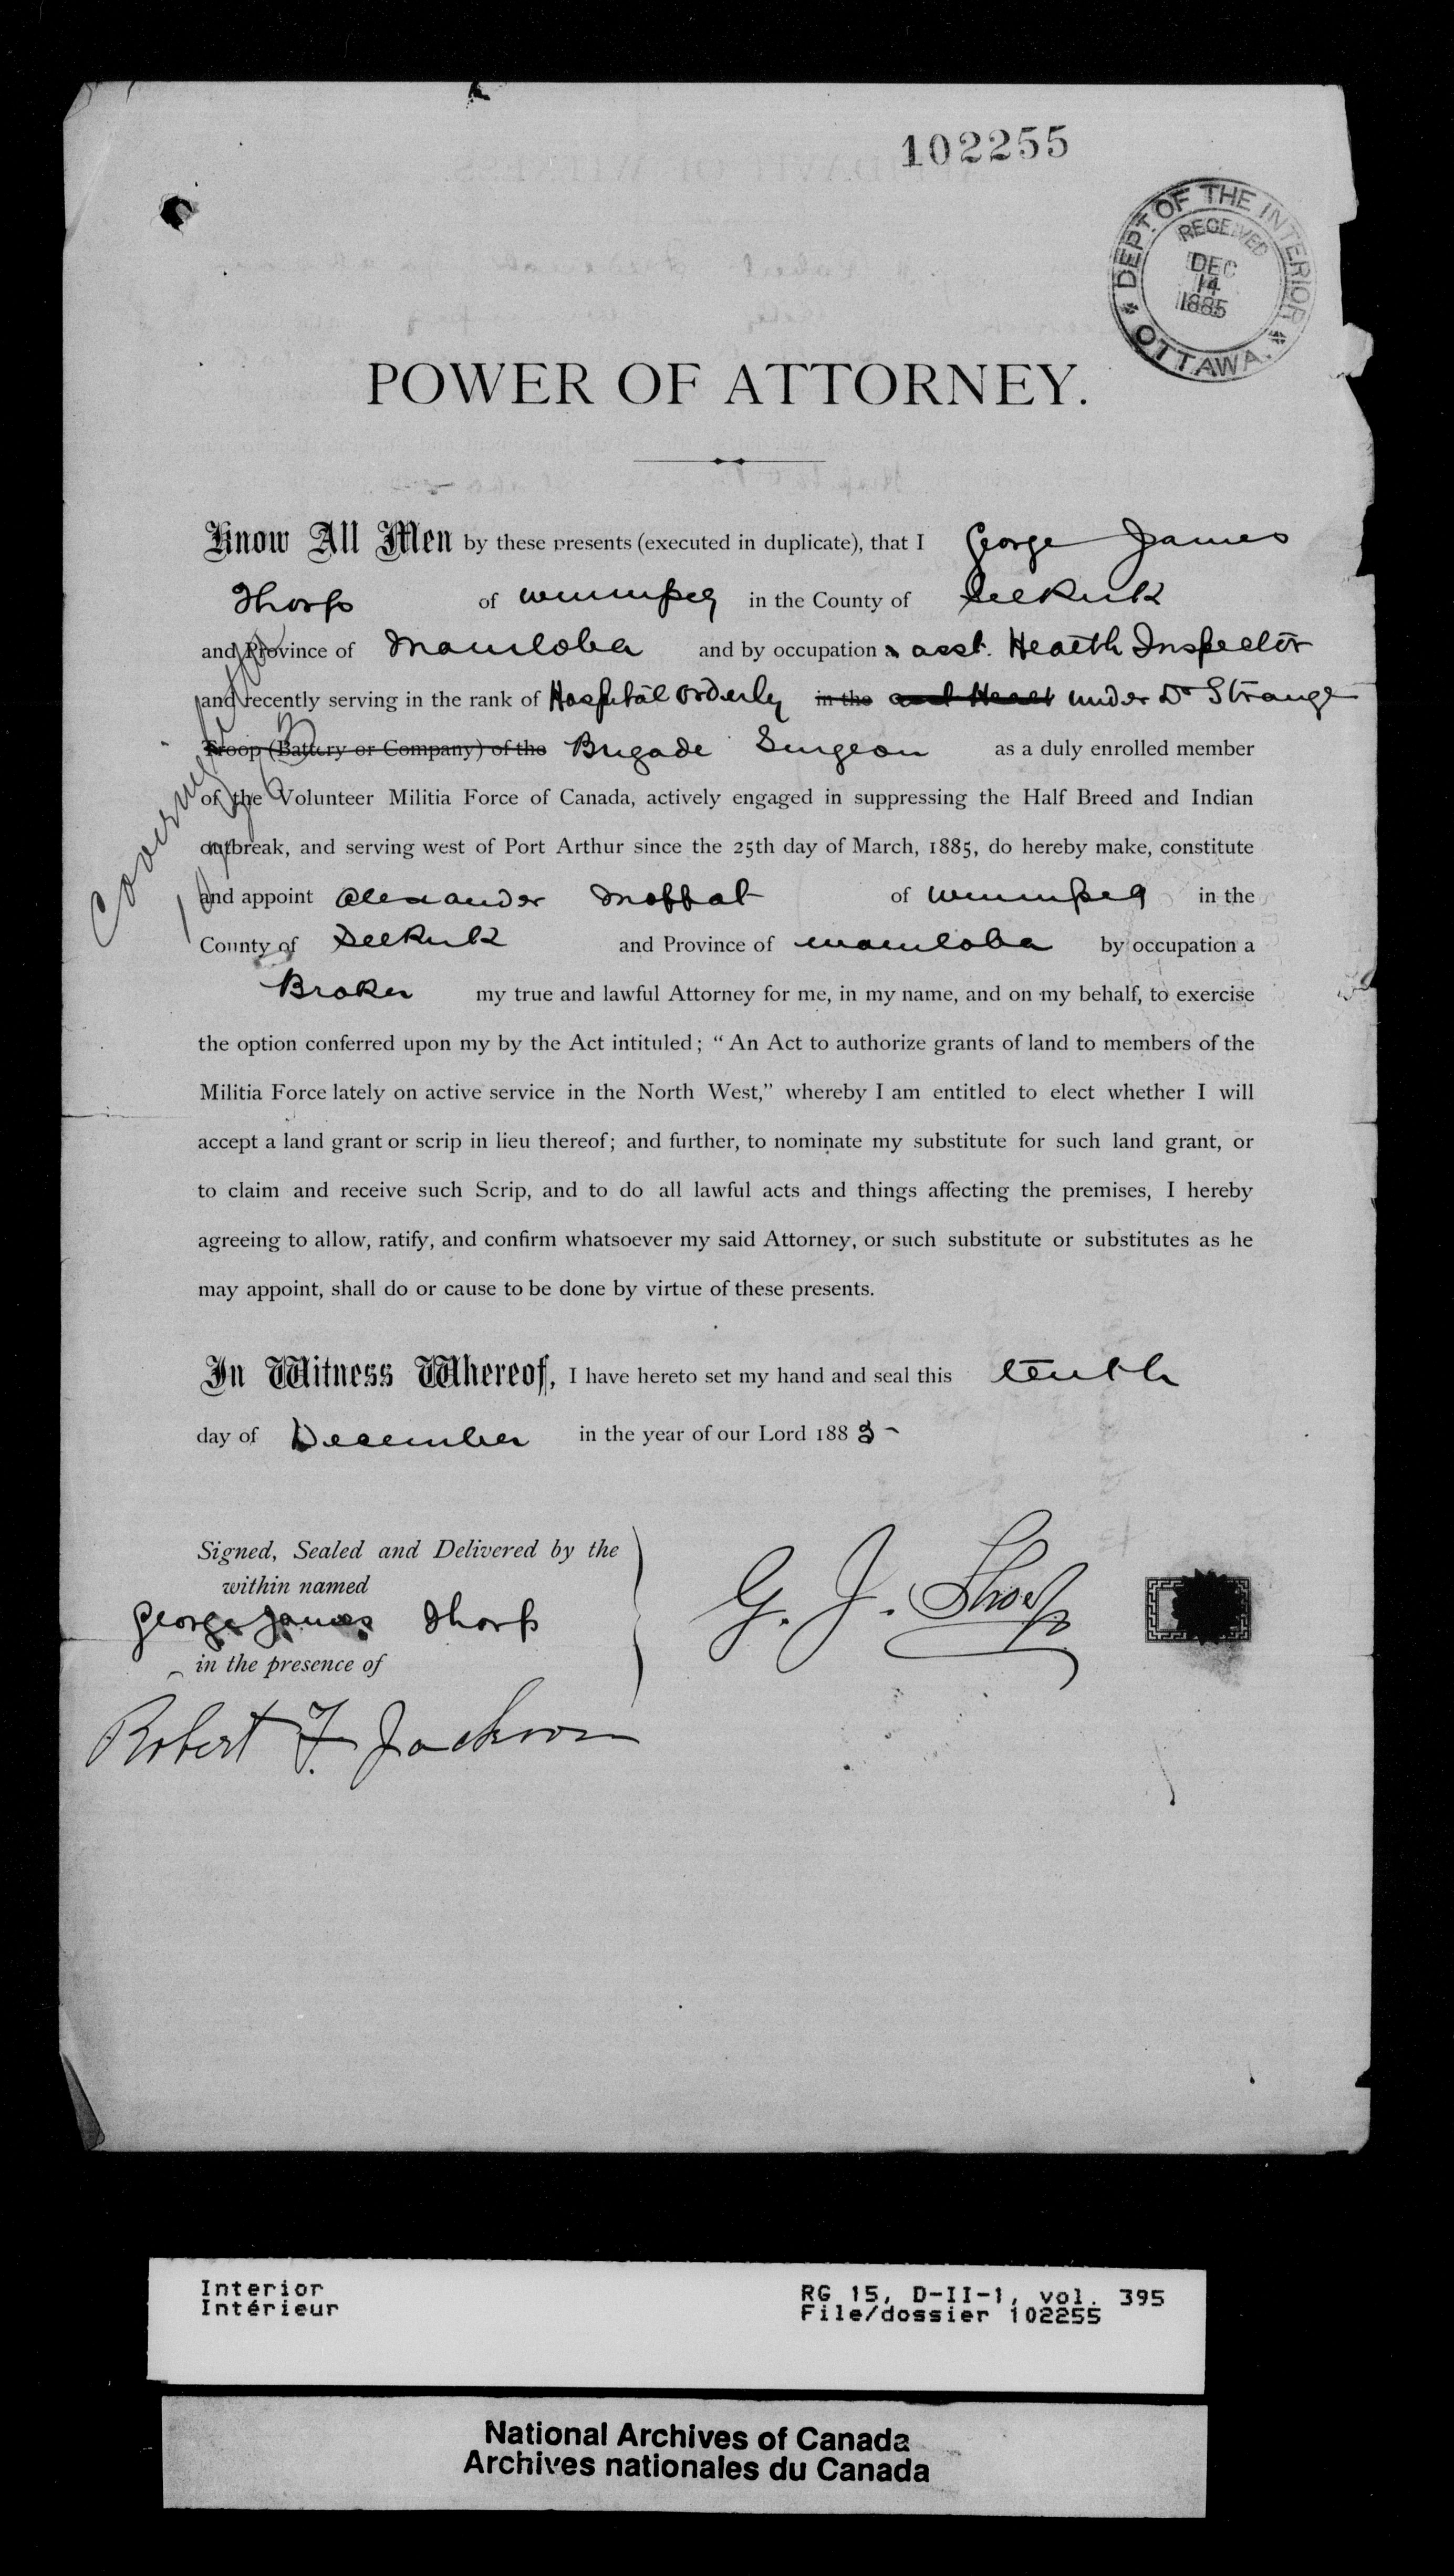 102255
DEPT. OF THE INTERIOR
RECEIVED
DEC
14
1885
OTTAWA.
POWER OF ATTORNEY.
Know All Men by these presents (executed in duplicate), that I George James
Thorp of Winnipeg in the County of Selkirk
and Province of Manitoba and by occupation a asst. Health Inspector
and recently serving in the rank of Hospital Orderly in the under Dr Strange
Troop (Battery or Company) of the Brigade Surgeon as a duly enrolled member
of the Volunteer Militia Force of Canada, actively engaged in suppressing the Half Breed and Indian
outbreak, and serving west of Port Arthur since the 25th day of March, 1885, do hereby make, constitute
and appoint Alexander Moffat of Winnipeg in the
County of Selkirk and Province of Manitoba by occupation a
Broker my true and lawful Attorney for me, in my name, and on my behalf, to exercise
the option conferred upon my by the Act intituled; “ An Act to authorize grants of land to members of the
Militia Force lately on active service in the North West,” whereby I am entitled to elect whether I will
accept a land grant or scrip in lieu thereof; and further, to nominate my substitute for such land grant, or
to claim and receive such Scrip, and to do all lawful acts and things affecting the premises, I hereby
agreeing to allow, ratify, and confirm whatsoever my said Attorney, or such substitute or substitutes as he
may appoint, shall do or cause to be done by virtue of these presents.
In Witness Whereof, I have hereto set my hand and seal this tenth
day of December in the year of our Lord 1885
Signed, Sealed and Delivered by the
within named
George James Thorp
in the presence of
G. J. Thorp
Robert F. Jackson
Interior
Intérieur
RG 15, D-II-1, vol. 395
File/dossier 102255
National Archives of Canada
Archives nationales du Canada